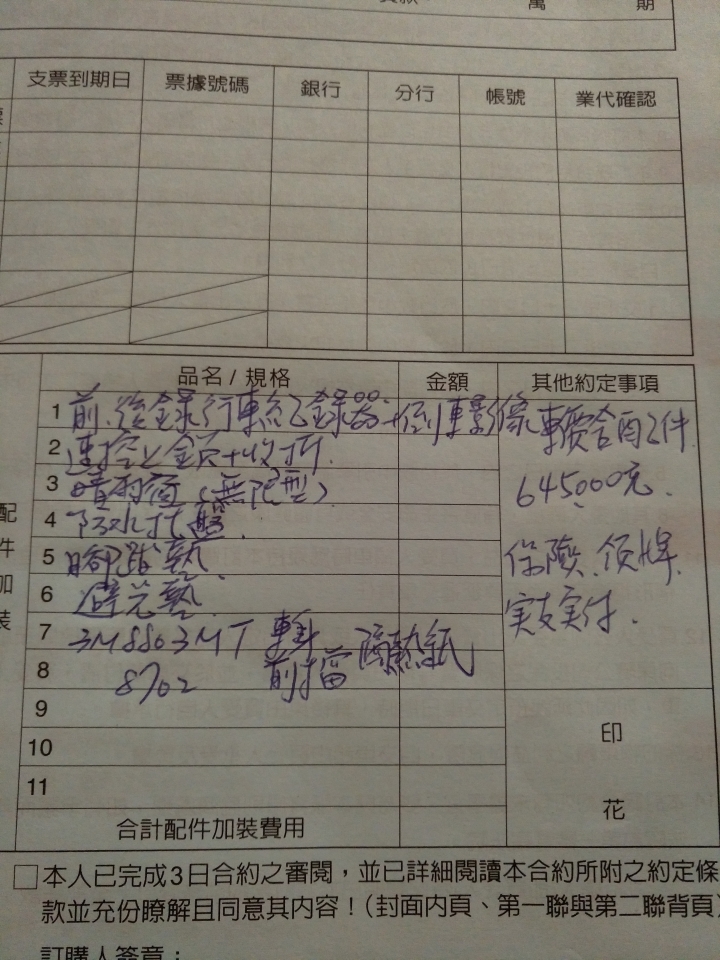 萬 期
支票到期日 票據號碼 銀行 分行 帳號 業代確認
品名 / 規格 金額 其他約定事項
1 前.後錄行車紀錄器+倒車影像 車價含配件
2 速控上鎖+收折.
645000元.
3 晴雨窗(無限型)
4 防水托盤
5 腳踏墊 保險、領牌.
6 避光墊 実支実付.
7 3M8803MT 車身 隔熱紙
8 8702 前擋
9
10
11
印
花
合計配件加裝費用
配
件
加
裝
□本人已完成3日合約之審閱，並已詳細閱讀本合約所附之約定條
款並充份瞭解且同意其內容！(封面內頁、第一聯與第二聯背頁)
訂購人簽章：